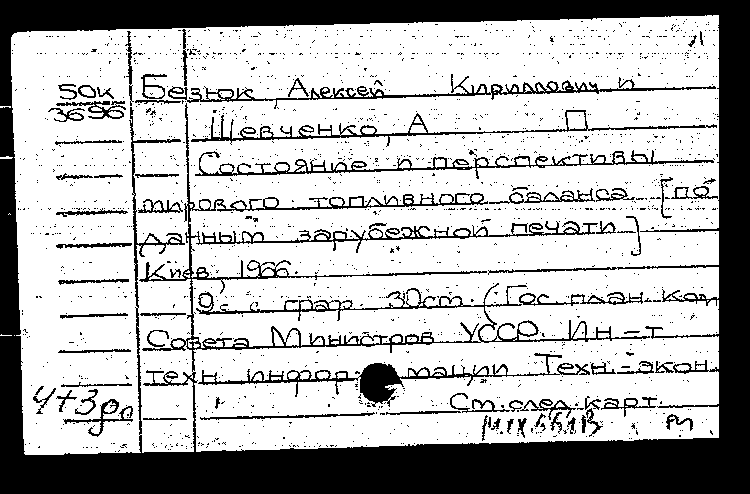 50к Безюк, Алексей Кириллович и
3696
Шевченко, А П
Состояние и перспективы
мирового топливного баланса [по
данным зарубежной печати]
Киев, 1966.
9 с. с граф. 30см. (Гос план ком
Совета Министров УССР. Ин-т
техн информации Техн.-экон.
См. след. карт.